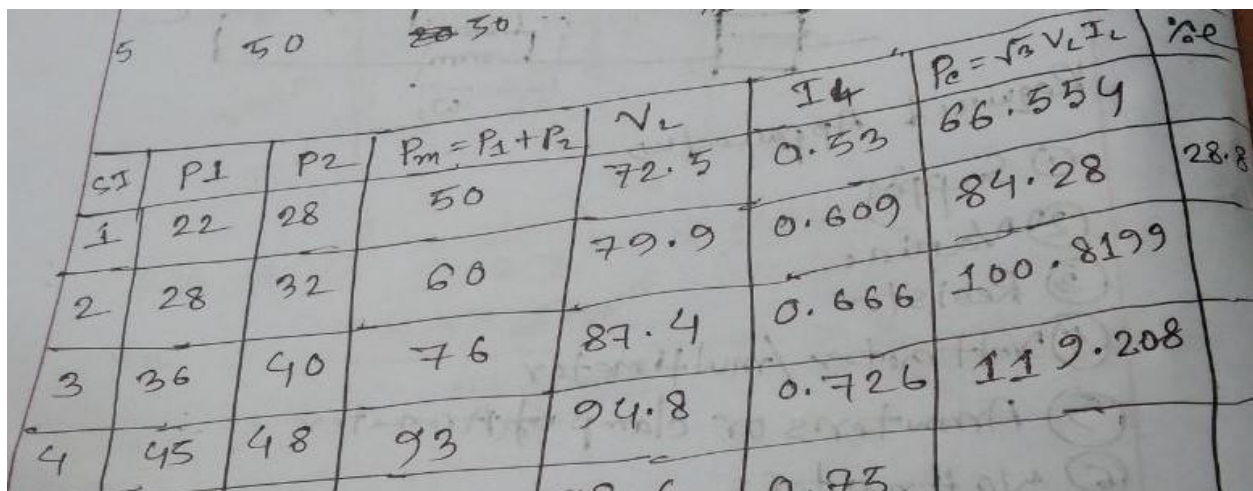 5 50 50
SI P1 P2 Pm = P1 + P2 VL IL Pc = √3 VL IL %e
1 22 28 50 72.5 0.53 66.554
2 28 32 60 79.9 0.609 84.28 28.8
3 36 40 76 87.4 0.666 100.8199
4 45 48 93 94.8 0.726 119.208
0.75